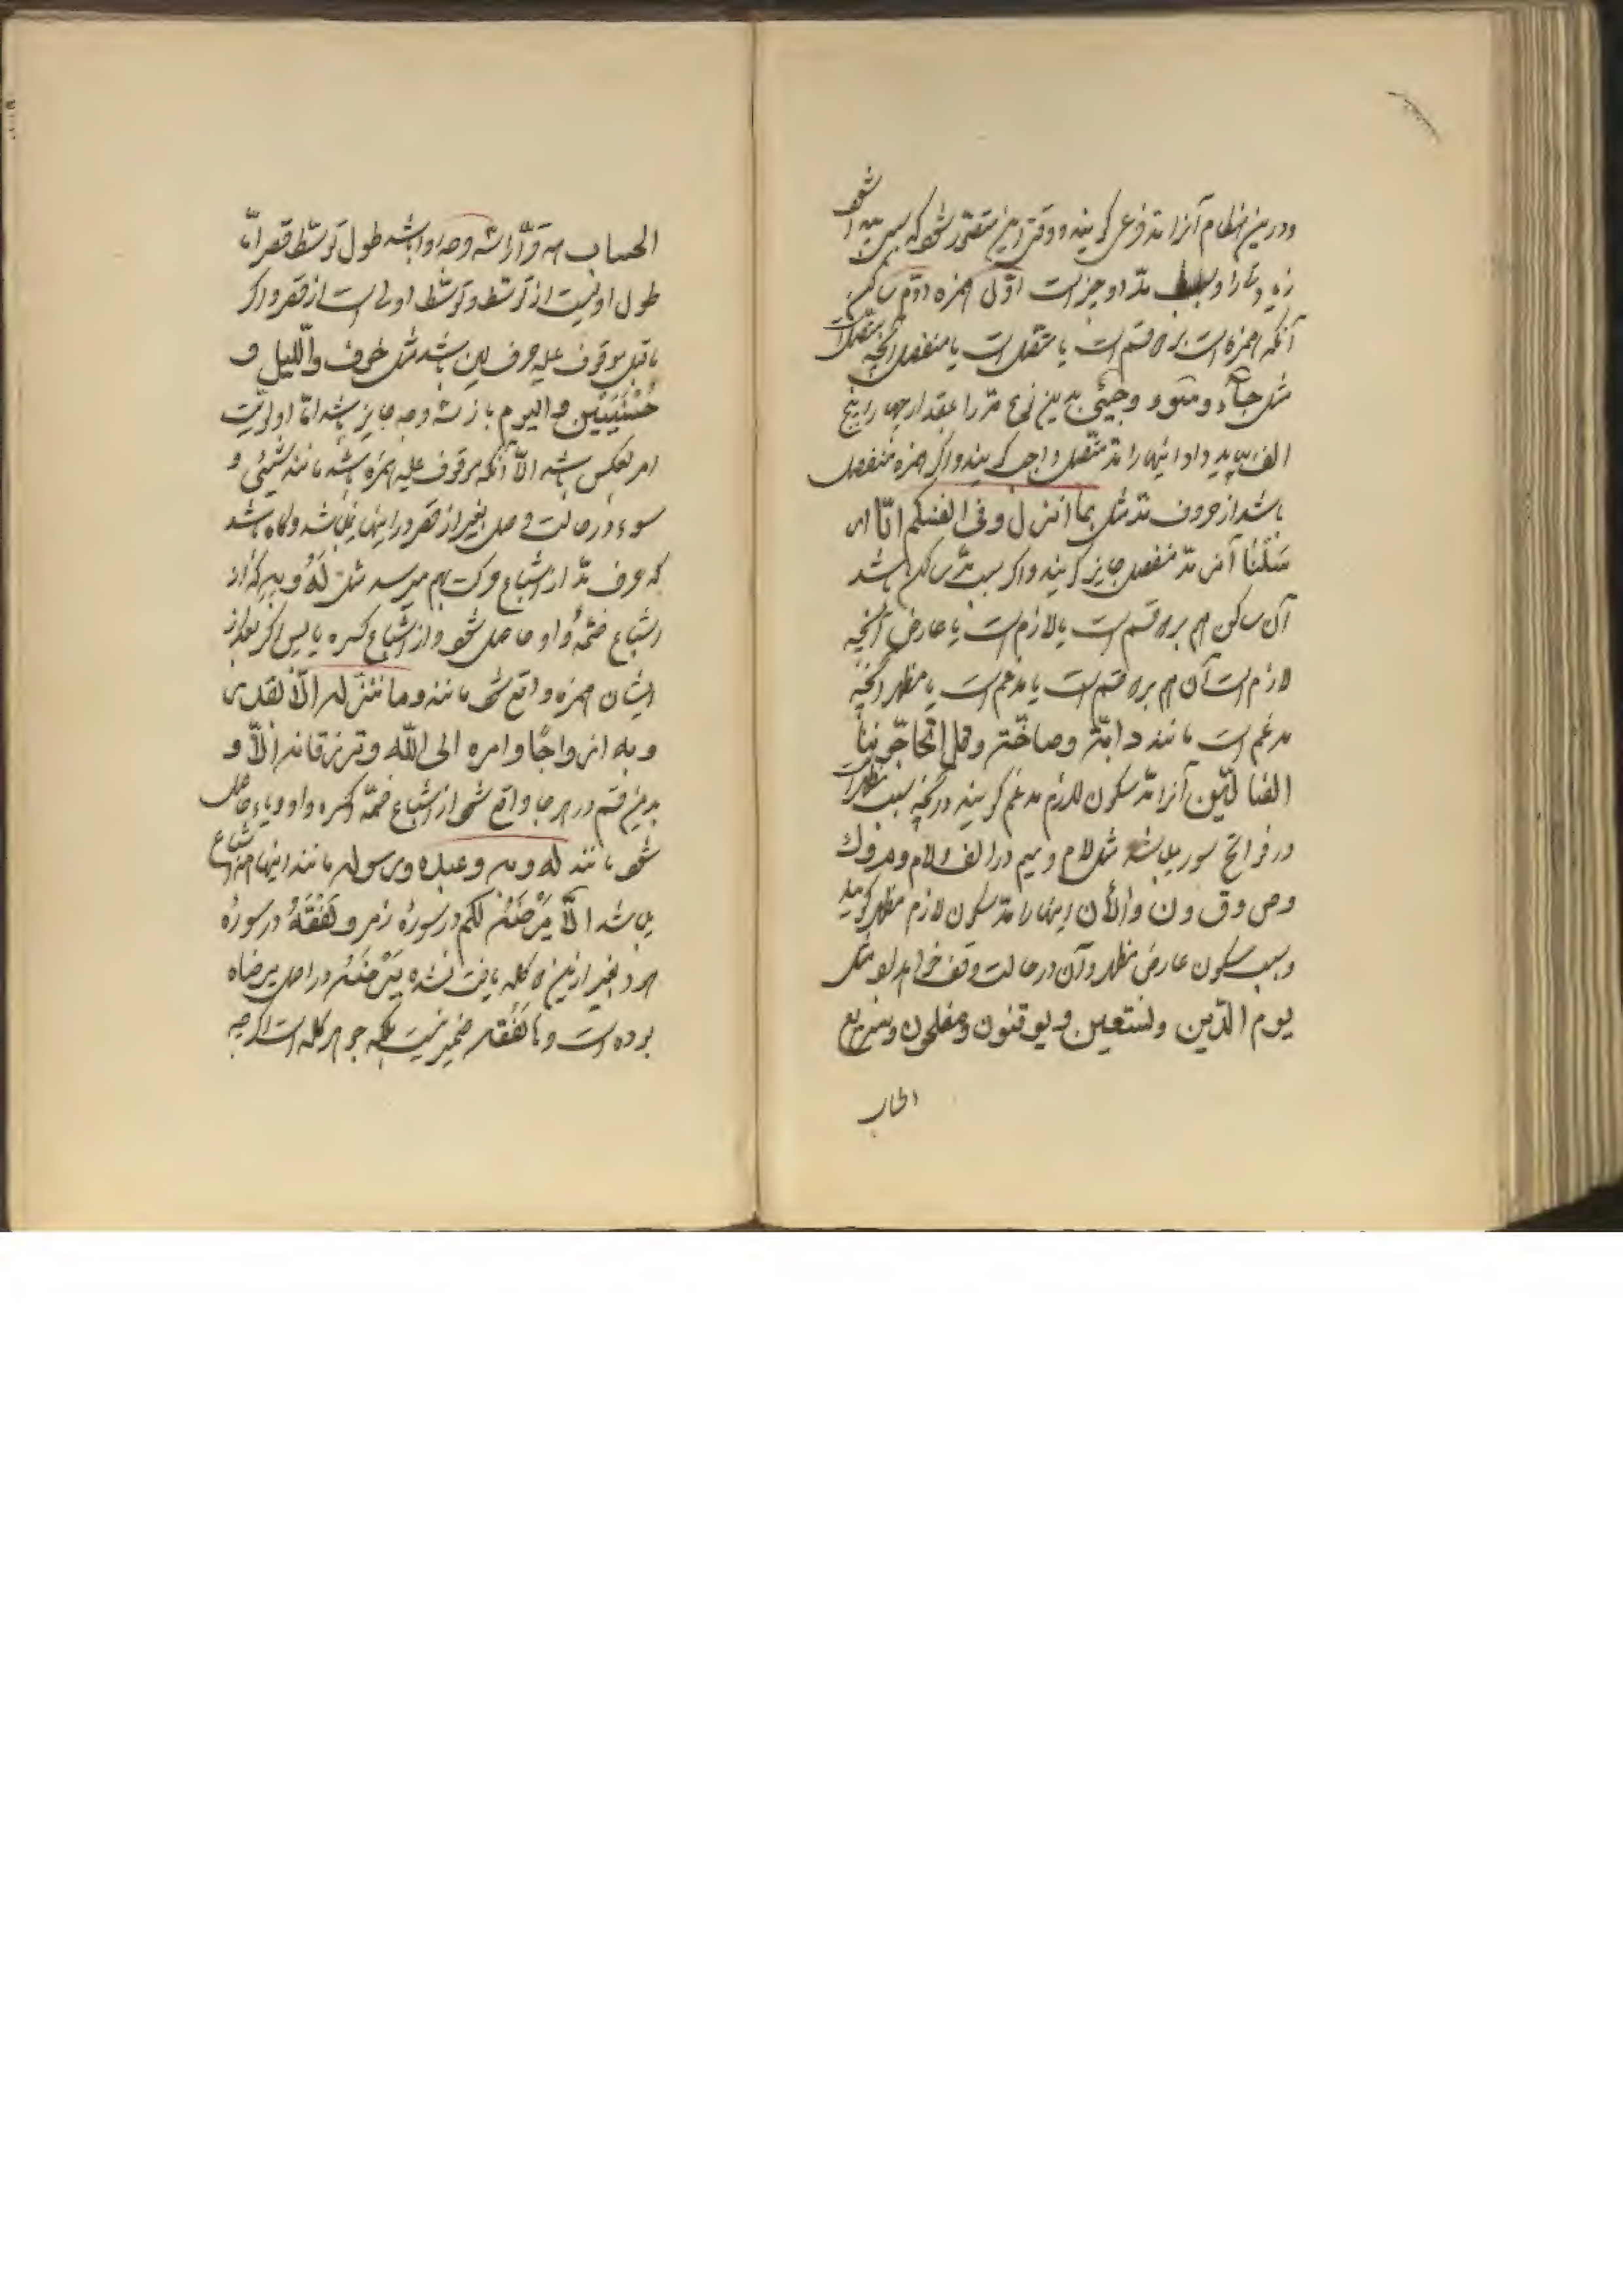 ودرین مقام آنرا مد فرعی گویند و وقتی این متصور شود که سبب مد
مد دو چیز است اوّل همزه دوّم ساکن
آنکه همزه است بر دو قسم است یا متصل است یا منفصل آنچه متصل است
مثل جآء و سوء و جیٔ بدین نوع مد را بمقدار چهار و پنج
الف باید داد اینها را مد متصل واجب گویند و اگر همزه منفصل
باشد از حروف مد مثل بما انزل و فی انفسکم انّا ار
سَلْنا آنرا مد منفصل جایز گویند و اگر سبب مد ساکن باشد
آن ساکن هم بر دو قسم است یا لازم است یا عارض آنچه
لازم است آن هم بر دو قسم است یا مدغم است یا مظهر آنچه
مدغم است مانند دابّة و صاخّة و قل اتحاجّوننا
الضالّین آنرا مد سکون لازم مدغم گویند و آنچه سبب مظهر است
در فواتح سور میباشد مثل لام و میم در الف و لام و میم و ک
و ص و ق و ن و اٰلأن اینها را مد سکون لازم مظهر گویند
و سبب سکون عارض مظهر و آن در حالت وقف خواهد بود مثل
یوم الدّین و نستعین و یوقنون و مفلحون و سریع
الحساب
الحساب همه قرّاء را سه وجه روا باشد طول توسّط قصر امّا
طول اولیست از توسّط و توسّط اولی است از قصر و اگر
ماقبل موقوف علیه حرف لین باشد مثل خوف و اللّیل و
حُسْنَیَیْن و الیوم باز سه وجه جایز باشد امّا اولویّت
امر بعکس باشد الّا آنکه موقوف علیه همزه باشد مانند شیئی و
سوء در حالت وصل بغیر از قصر در اینها نباشد و گاه باشد
که حرف مد از اشباع حرکت بهم میرسد مثل لَهُ و بِهِ که از
اشباع ضمّه واو حاصل شود و از اشباع کسره یا پس اگر بعد از
ایشان همزه واقع شود مانند و ما ننزله الّا بقدر
و به ازواجًا و امره الی اللّه و ترزقانه الّا و
بدین قسم در هر جا واقع شود از اشباع ضمّه و کسره واو و یاء حاصل
شود مانند له و به و عبده و رسوله مانند اینها همه اشباع
میباشد الّا یَرْضَهُ لکم در سورهٔ زمر و نَفْقَهُ در سورهٔ
هود بغیر ازین دو کلمه یافت نشده یَرْضَهُ در اصل یرضاه
بوده است و ها نَفْقَهُ ضمیر نیست بلکه جوهر کلمه است اگرچه